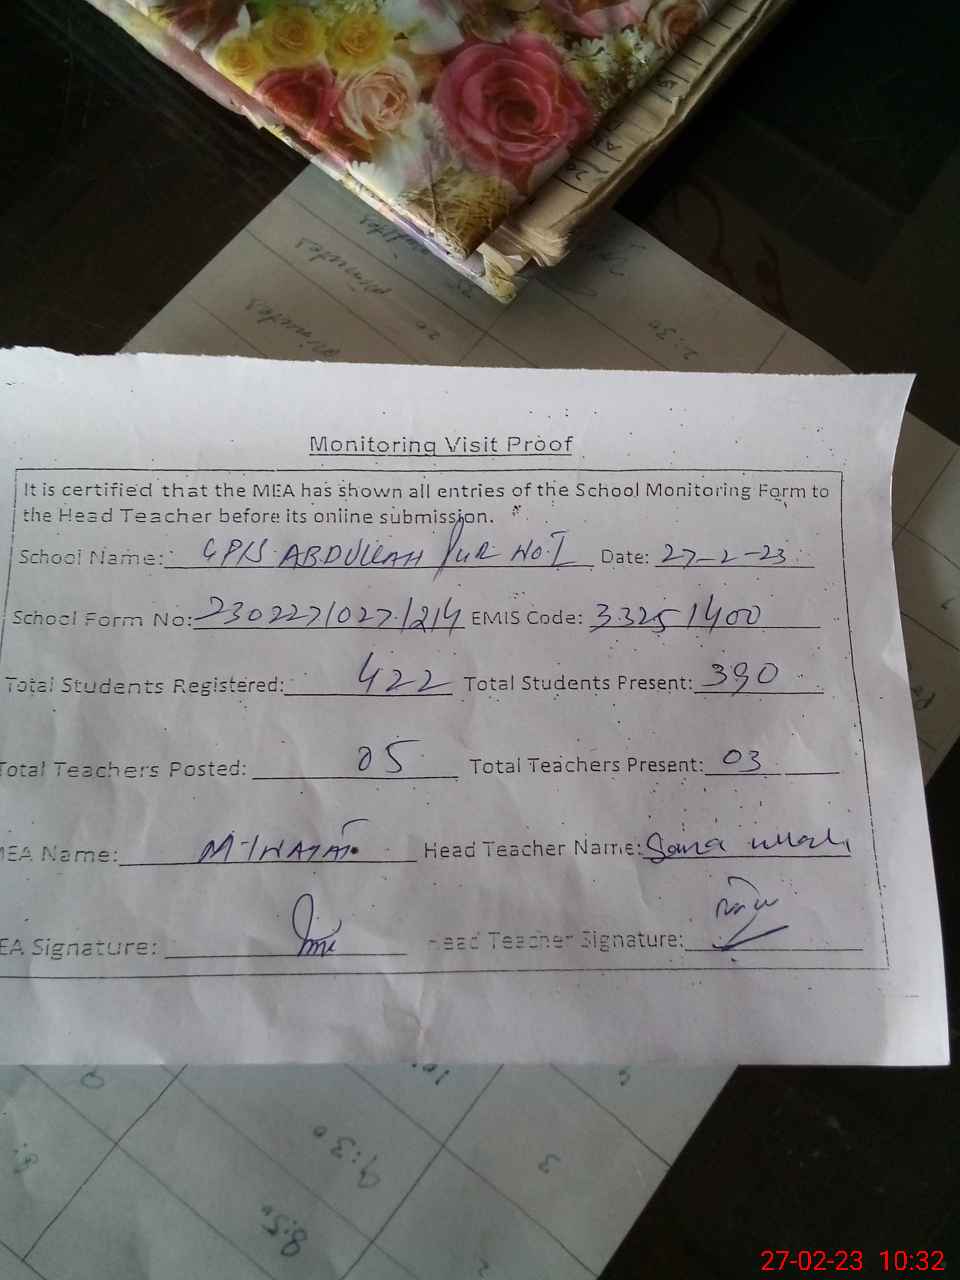 Monitoring Visit Proof
It is certified that the MEA has shown all entries of the School Monitoring Form to
the Head Teacher before its online submission.
School Name: GP/S ABDULLAH PUR NO.I Date: 27-2-23
School Form No: 23022710271214 EMIS Code: 33251400
Total Students Registered: 422 Total Students Present: 390
Total Teachers Posted: 05 Total Teachers Present: 03
MEA Name: Head Teacher Name: Sana
EA Signature: Head Teacher Signature:
minutes
minutes
20
9:30
8:50
3
27-02-23 10:32